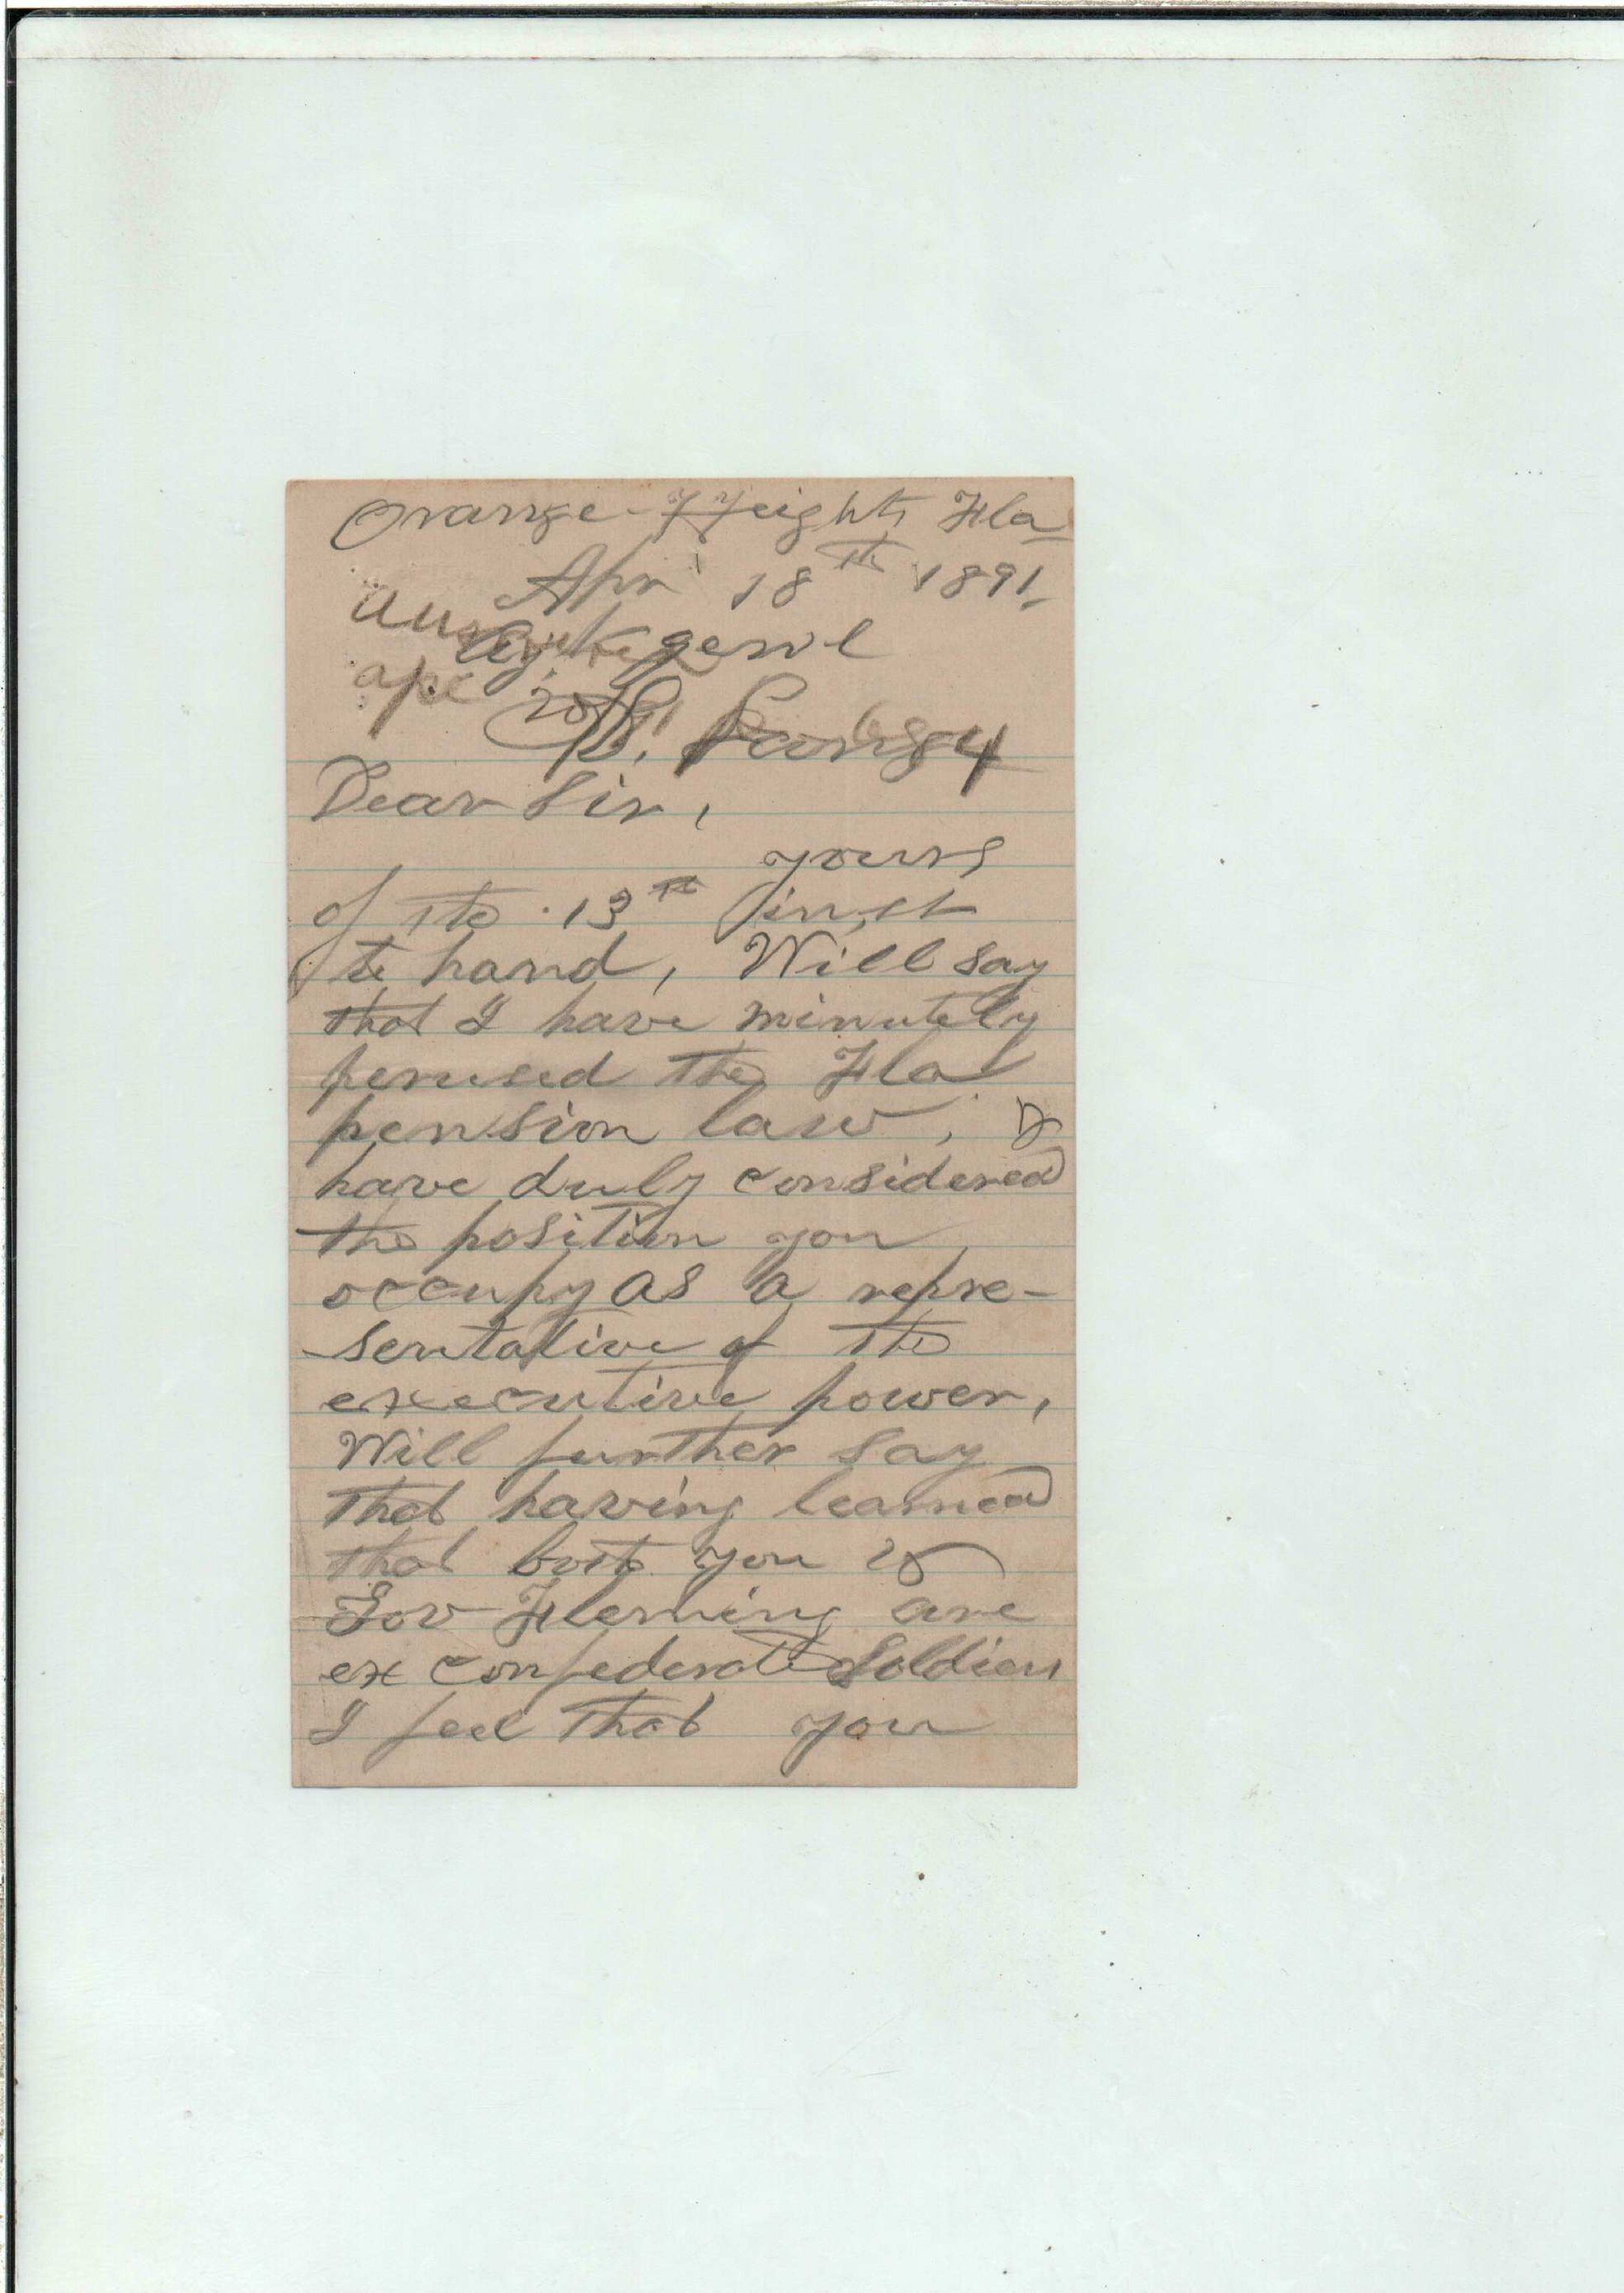 Orange-Heights Fla
Apr 18th 1891
Adjt genrl
D. Lang
684
Dear Sir,
yours
of the 13th inst
to hand, Will say
that I have minutely
perused the Fla
pension law, &
have duly considered
the position you
occupy as a repre-
-sentative of the
executive power,
Will further say
that having learned
that both you &
Gov Fleming are
ex confederate soldiers
I feel that you